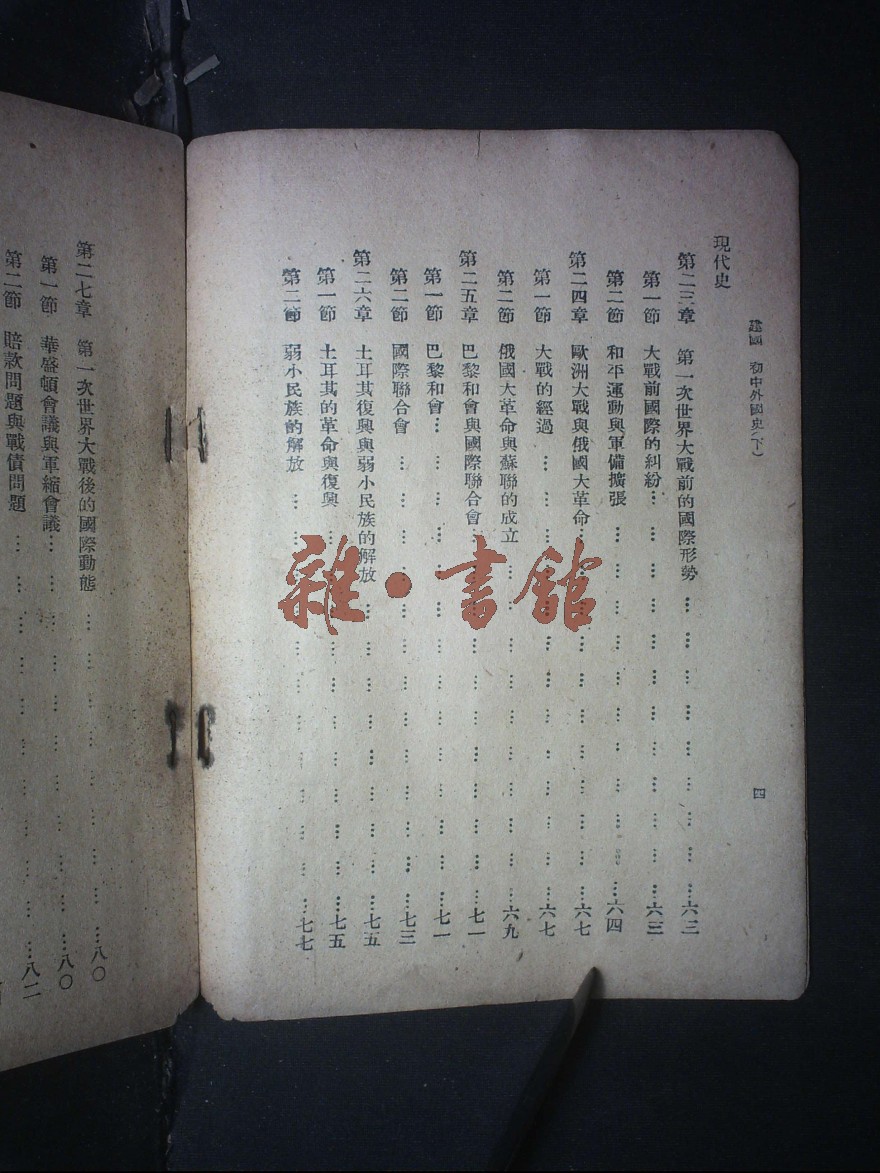 建國 初中外國史(下)
四
現代史
第二三章 第一次世界大戰前的國際形勢……六三
第一節 大戰前國際的糾紛……六三
第二節 和平運動與軍備擴張……六四
第二四章 歐洲大戰與俄國大革命……六七
第一節 大戰的經過……六七
第二節 俄國大革命與蘇聯的成立……六九
第二五章 巴黎和會與國際聯合會……七一
第一節 巴黎和會……七一
第二節 國際聯合會……七三
第二六章 土耳其復興與弱小民族的解放……七五
第一節 土耳其的革命與復興……七五
第二節 弱小民族的解放……七七
第二七章 第一次世界大戰後的國際動態……八〇
第一節 華盛頓會議與軍縮會議……八〇
第二節 賠款問題與戰債問題……八二
雜·書館